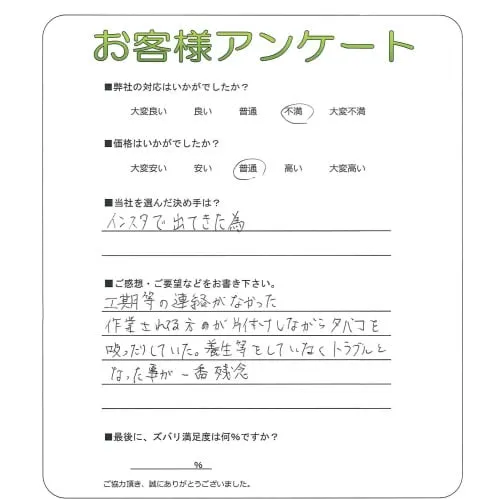 お客様アンケート
■弊社の対応はいかがでしたか？
大変良い 良い 普通 不満 大変不満
■価格はいかがでしたか？
大変安い 安い 普通 高い 大変高い
■当社を選んだ決め手は？
インスタで出てきた為
■ご感想・ご要望などをお書き下さい。
工期等の連絡がなかった
作業される方のが片付けしながらタバコを
吸ったりしていた。養生等をしていなくトラブルと
なった事が一番残念
■最後に、ズバリ満足度は何％ですか？
％
ご協力頂き、誠にありがとうございました。